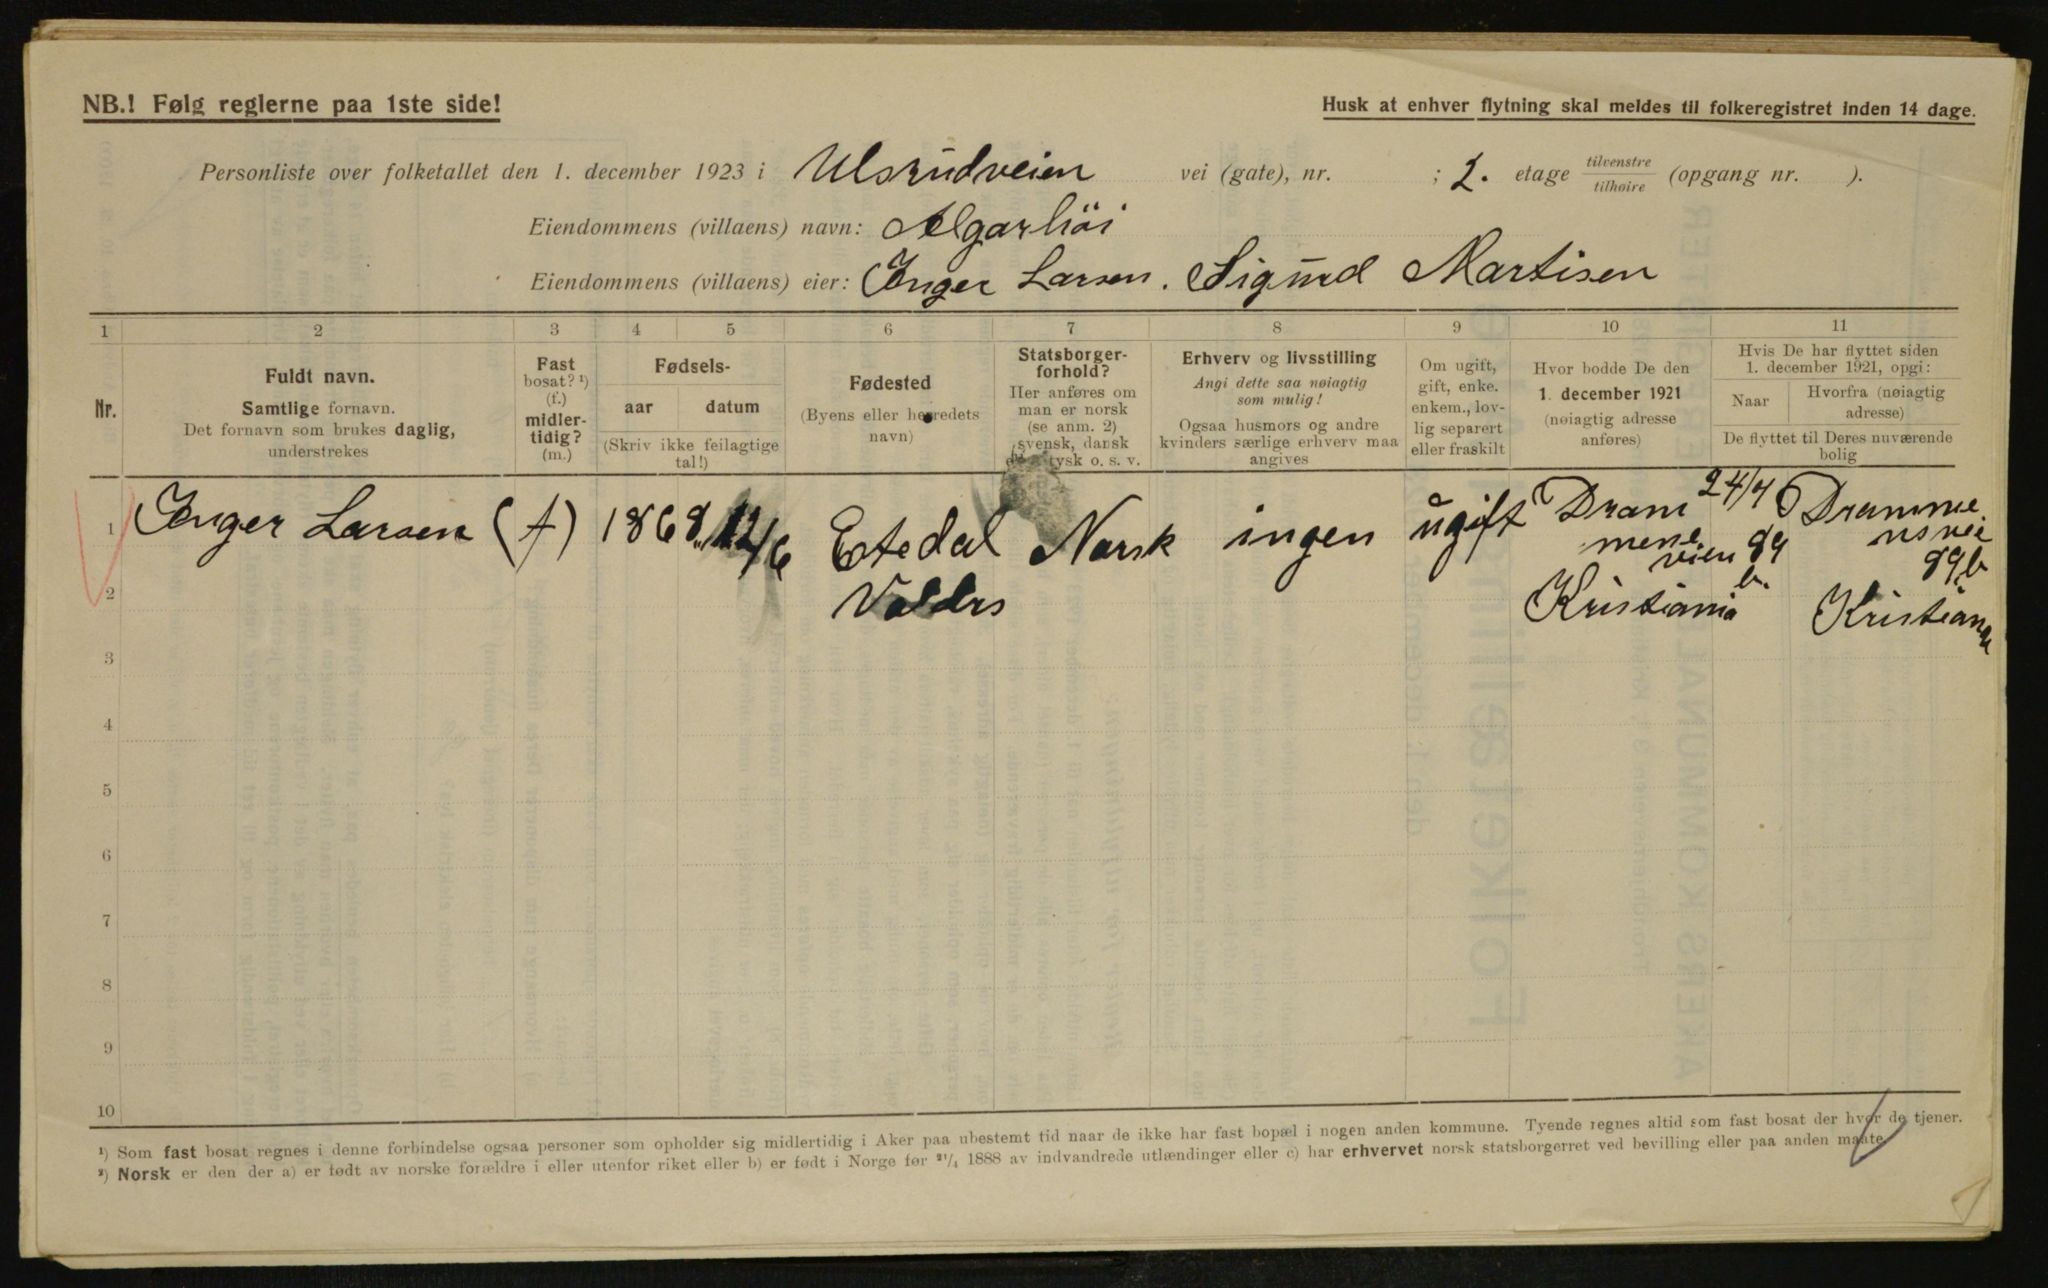 NB.! Følg reglerne paa 1ste side!
Husk at enhver flytning skal meldes til folkeregistret inden 14 dage.
Personliste over folketallet den 1. december 1923 i Ulsrudveien vei (gate), nr. ; 2. etage tilvenstre/tilhøire (opgang nr. ).
Eiendommens (villaens) navn: Algarhöi
Eiendommens (villaens) eier: Inger Larsen. Sigurd Martisen
1 2 3 4 5 6 7 8 9 10 11
Nr.
Fuldt navn.
Samtlige fornavn.
Det fornavn som brukes daglig,
understrekes
Fast
bosat? ¹)
(f.)
midler-
tidig?
(m.)
Fødsels-
aar datum
(Skriv ikke feilagtige
tal!)
Fødested
(Byens eller herredets
navn)
Statsborger-
forhold?
Her anføres om
man er norsk
(se anm. 2)
svensk, dansk
tysk o. s. v.
Erhverv og livsstilling
Angi dette saa nøiagtig
som mulig!
Ogsaa husmors og andre
kvinders særlige erhverv maa
angives
Om ugift,
gift, enke.
enkem., lov-
lig separert
eller fraskilt
Hvor bodde De den
1. december 1921
(nøiagtig adresse
anføres)
Hvis De har flyttet siden
1. december 1921, opgi:
Naar
Hvorfra (nøiagtig
adresse)
De flyttet til Deres nuværende
bolig
1 Inger Larsen (f) 1868 12/6 Etedal Norsk ingen ugift Dram 24/7 Dramme
mens nsvei
veien 89 89 b
b.
2 Valdrs Kristiania Kristiania
3
4
5
6
7
8
9
10
¹) Som fast bosat regnes i denne forbindelse ogsaa personer som opholder sig midlertidig i Aker paa ubestemt tid naar de ikke har fast bopæl i nogen anden kommune. Tyende regnes altid som fast bosat der hvor de tjener.
²) Norsk er den der a) er født av norske forældre i eller utenfor riket eller b) er født i Norge før ²¹/₄ 1888 av indvandrede utlændinger eller c) har erhvervet norsk statsborgerret ved bevilling eller paa anden maate.